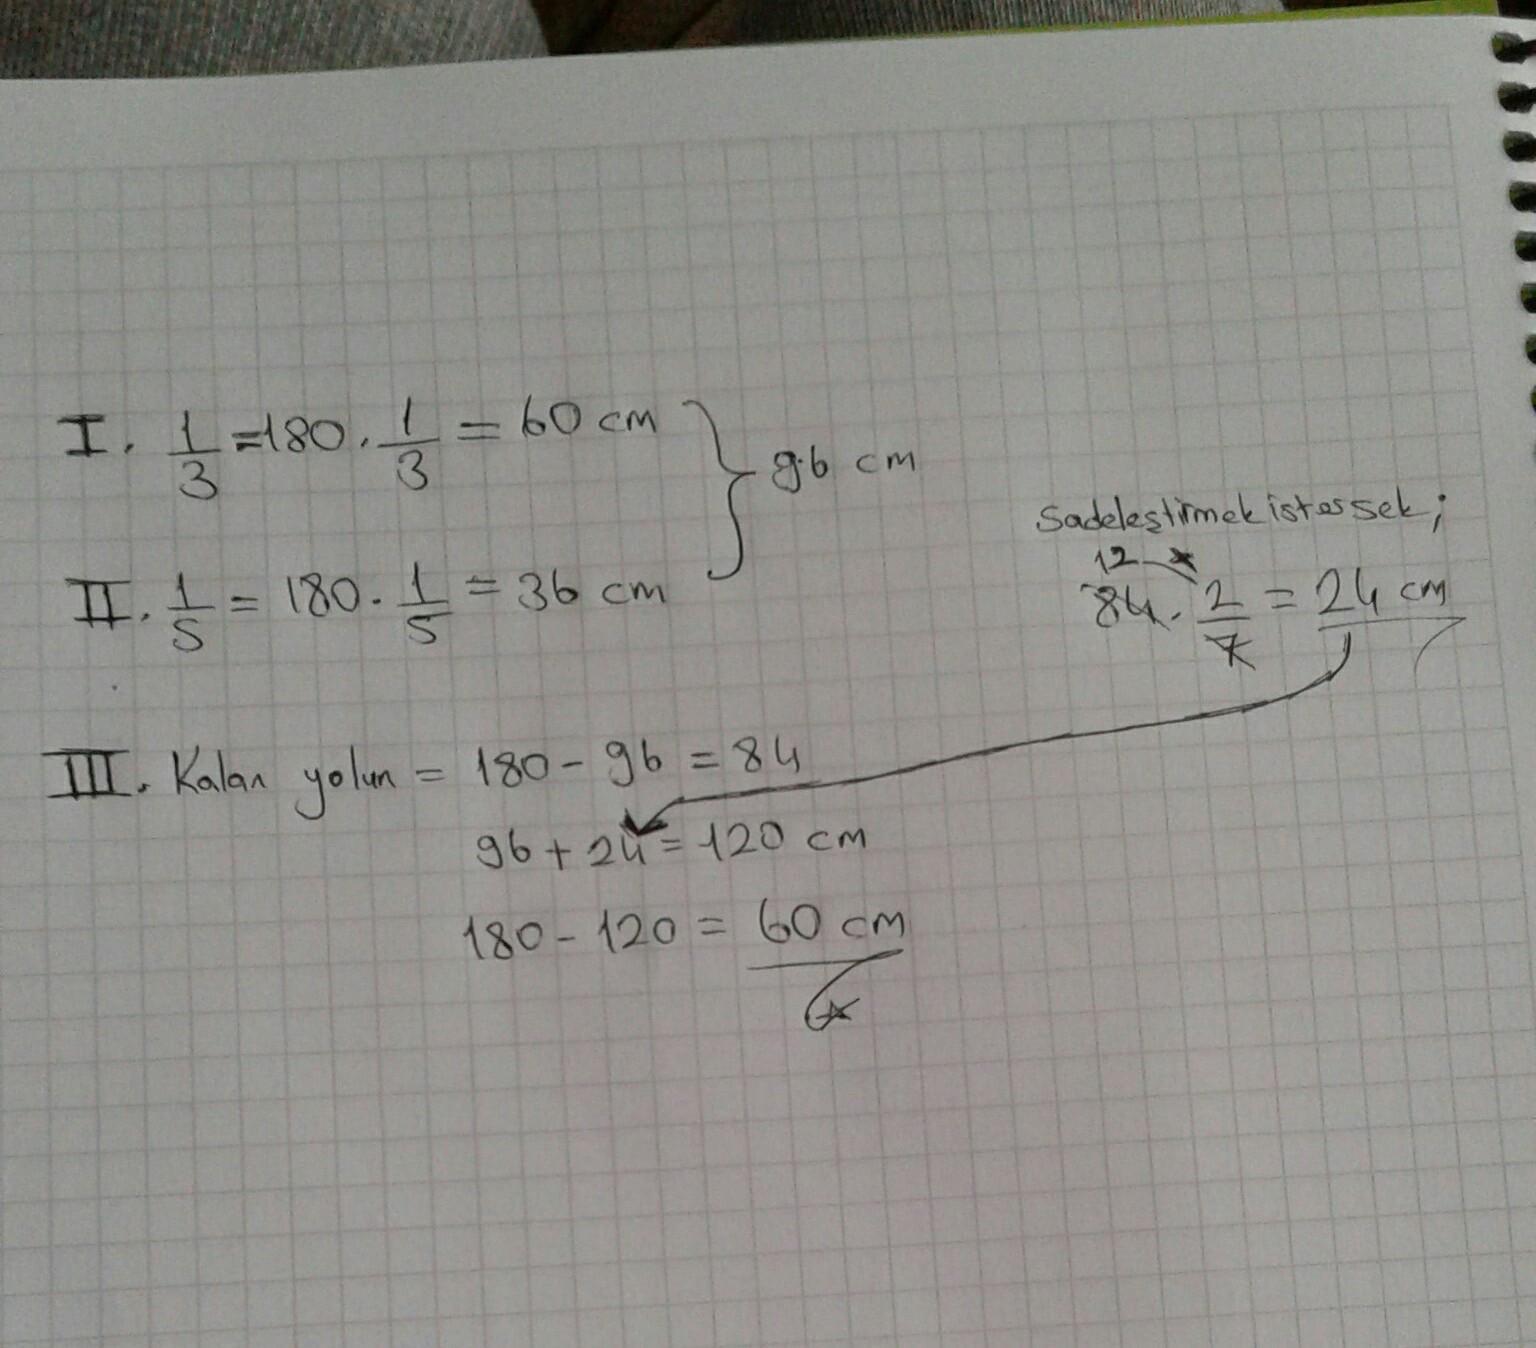 I. 1/3 = 180 . 1/3 = 60 cm
96 cm
II. 1/5 = 180 . 1/5 = 36 cm
Sadeleştirmek istersek;
12
84 . 2/7 = 24 cm
III. Kalan yolun = 180 - 96 = 84
96 + 24 = 120 cm
180 - 120 = 60 cm